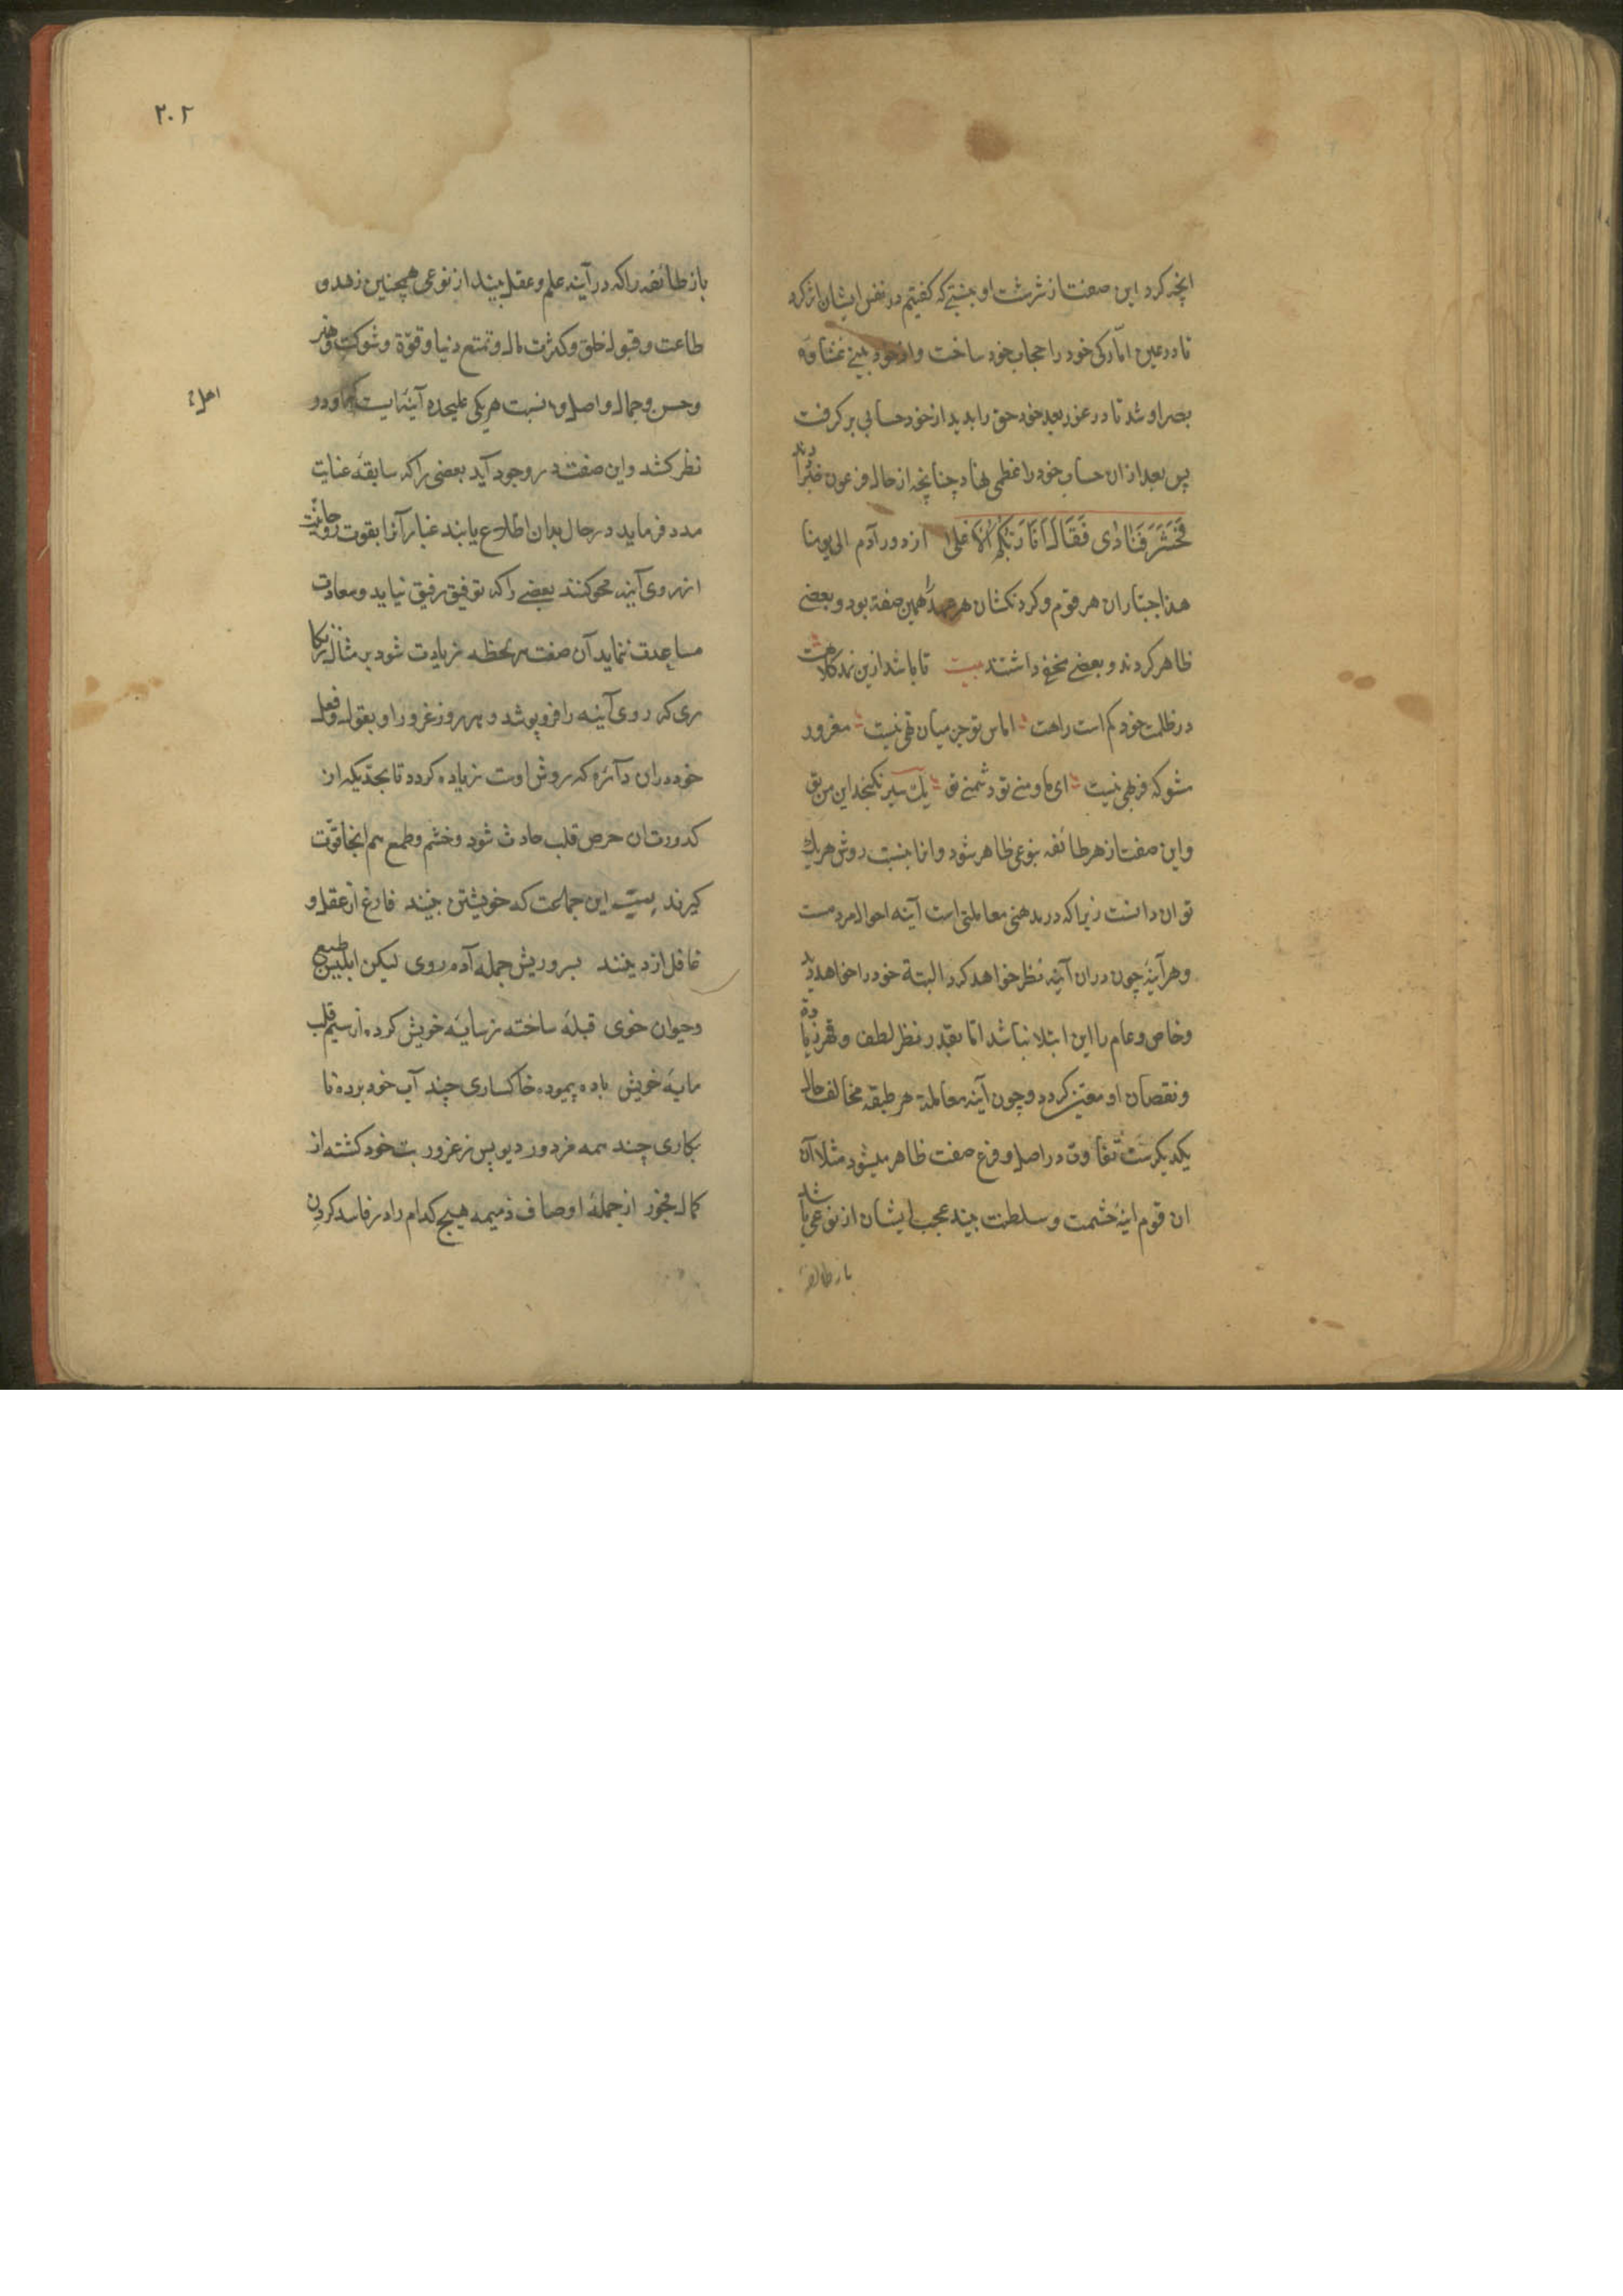 انچه کرد این صفت از شرشت او بنسبتی که کفتیم در نفس ایشان اثر کرد
تا در عین امّارکی خود را حجاب خود ساخت و از خود بینی غشاوه
بصر او شد تا در غور بعید خود حق را بدید از خود حسابی بر کرفت
پس بعد از ان حساب خود را عظمی نهاد چنانچه از حال فرعون خبر داد
فَحَشَرَ فَنَادٰی فَقَالَ اَنَا رَبُّکُمُ الاَعْلی از دور آدم الی یومنا
هذا جبّاران هر قوم و کردنکشان هر عهد را همین صفة بود و بعضی
ظاهر کردند و بعضی مخفی داشتند بیت تا باشد ازین نمد کلاهت
در ظلمت خود کم است راهت اماس تو جز میان تهی نیست مغرور
مشو که فربهی نیست ای ما و منی تو دشمنی تو یک سیر نکنجد این من تو
و این صفت از هر طائفه بنوعی ظاهر شود و انا بنسبت روش هر یک
توان دانست زیرا که در مدهنی معاملتی است آینه احوال مردمست
و هر آینه چون دران آینه نظر خواهد کرد البتة خود را خواهد دید
و خاص و عام را این ابتلا نباشد امّا بقدر نظر لطف و قهر زیاده
و نقصان او معیّن کردد و چون آینه معاملة هر طبقه مخالف حال
یکدیکرست تفاوت در اصل و فرع صفت ظاهر میشود مثلا آن
ان قوم اینهٔ حشمت و سلطنت بیند عجب ایشان از نوعی باشد
باز طائفه
۲۰۲
باز طائفه را که در آینه علم و عقل بیند از نوعی همچنین زهد و
طاعت و قبول خلق و کثرت مال و تمتع دنیا و قوّة و شوکت و هنر
و حسن و جمال و اصل و نسبت هر یکی علیحده آینه ایست که او در
نظر کشد و این صفت در وجود آید بعضی را که سابقهٔ عنایت
مدد فرماید در حال بدان اطّلاع یابند غبار آنرا بقوت روحانیّت
از روی آینه محو کنند بعضی را که توفیق رفیق نیاید و سعادت
مساعدت ننماید آن صفت هر لحظه زیادت شود بر مثال زنکا
ری که روی آینه را فرو پوشد و هر روز غرور او بقول و فعل
خود دران دآئره که روش اوست زیاده کردد تا بحدّیکه از
کدورت ان حرص قلب حادث شود و خشم و طمع هم انجا قوّت
کیرند بیت این جماعت که خویشتن بینند فارغ از عقل و
غافل از دینند بسر و ریش جمله آدم روی لیکن ابلیس طبع
و حیوان خوی قبلهٔ ساخته ز سایهٔ خویش کرده از سیم قلب
مایهٔ خویش باده پیموده خاکساری چند آب خود برده نا
بکاری چند همه مزدور دیو پس ز غرور بت خود کشته از
کمال فجور از جملهٔ اوصاف ذمیمه هیچ کدام را در فاسد کردن